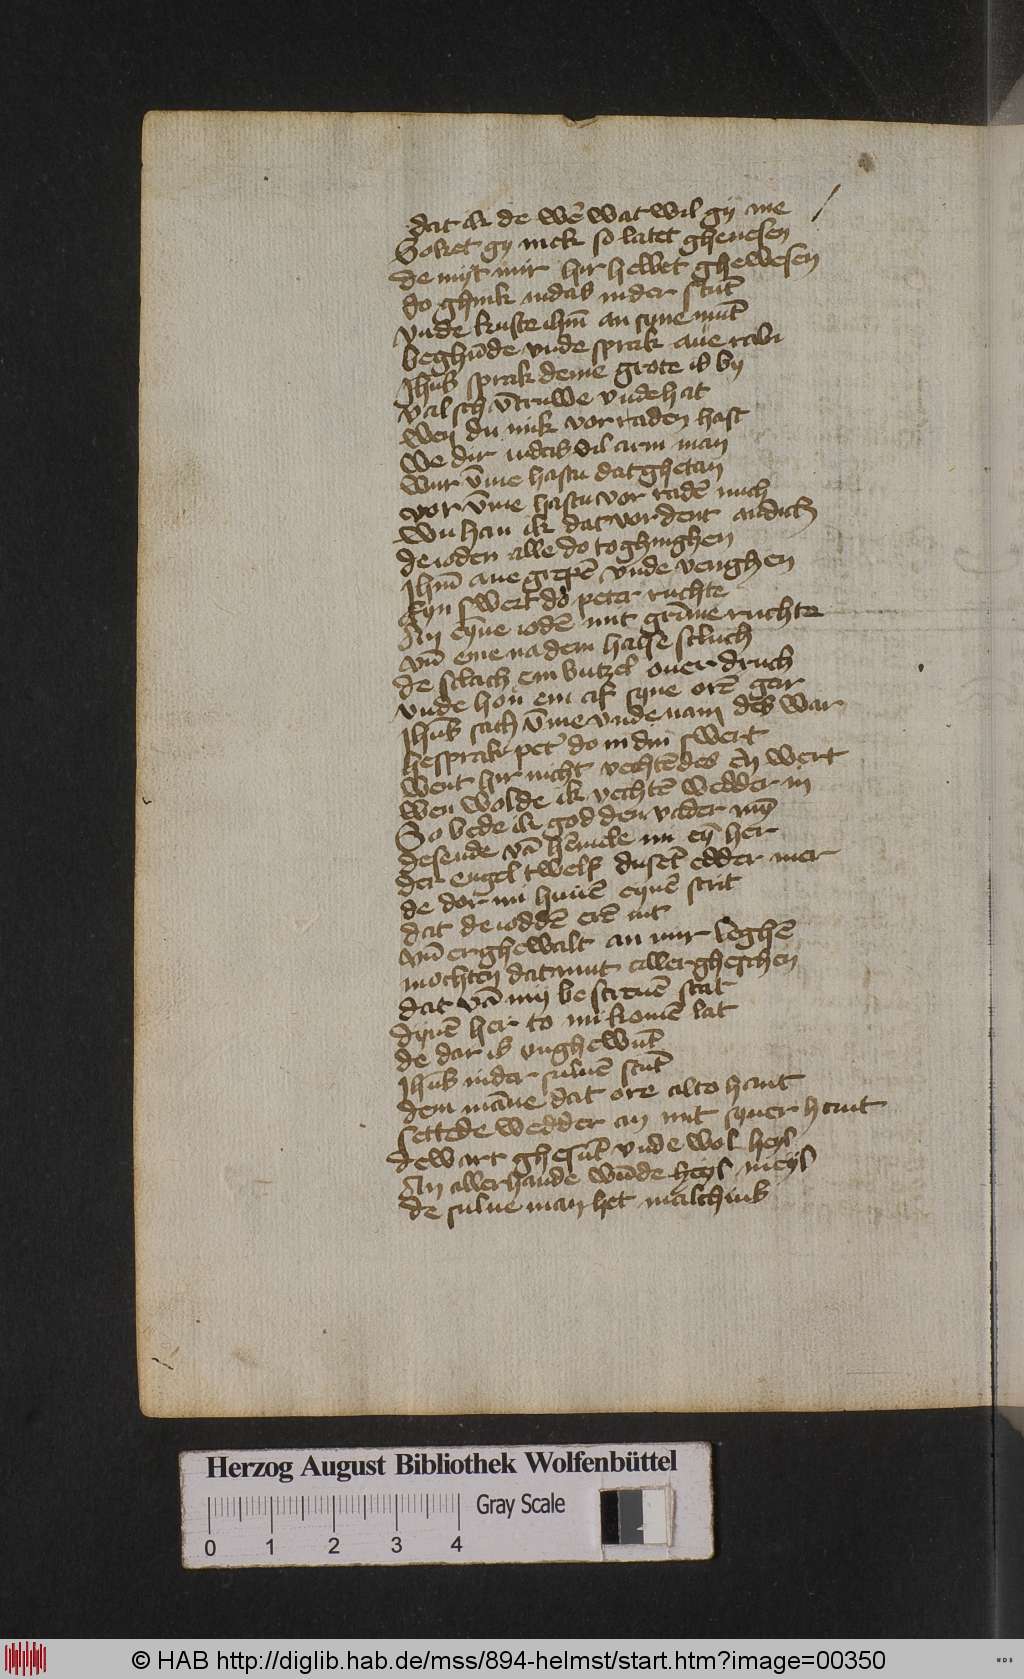 dat ik de wē wat wil gy me
Soket gy mck so latet ghenesen
de myt mir hir hebbet ghewesen
do ghink iudas in der stūt
vnde kuste ihm̄ an syne mūt
beghūde vnde sprak aue rabi
Jhūs sprak deme grote is by
valsch vntruwe vnde hat
wen du mik vorraden hast
we dir iudas vil arm man
wur v̄me hastu dat ghetan
vor v̄me hastu vor radē mich
wu han ik dat vordent an dich
de ioden alle do to ghinghen
Jhm̄ ane grepē vnde venghen
Eyn swert do peter ruchte
An eyne iodē mit grīme ruchte
vn̄ eme na dem halse scluch
de sclach em butzel ouer druch
vnde hou em af syne orē gar
Jhūs sach v̄me vnde nam des war
he sprak pet' do in din swert
went hir nicht vechtēdes ēn wert
wen wolde ik vechtē wedder in
So bede ik god den vader myn
de sende vā hēmele mi eȳ her
der engel twelf dusēt edder mer
de dor mi huuē eynē strit
dat de ioddē erē nit
vn̄ er ghewalt an mir leghē
mochten dat mut aller gheschen
dat vā mij bescreuē stat
dynē her to mi komē lat
de dar is vnghewūt
Jhūs in der suluē stūt
dem māne dat ore alto hant
settede wedder an mit syner hant
de wart ghesūt vnde wol heyl
An allerhande wūde heyl meyl
de sulue man het malchius
Herzog August Bibliothek Wolfenbüttel
Gray Scale
0 1 2 3 4
© HAB http://diglib.hab.de/mss/894-helmst/start.htm?image=00350